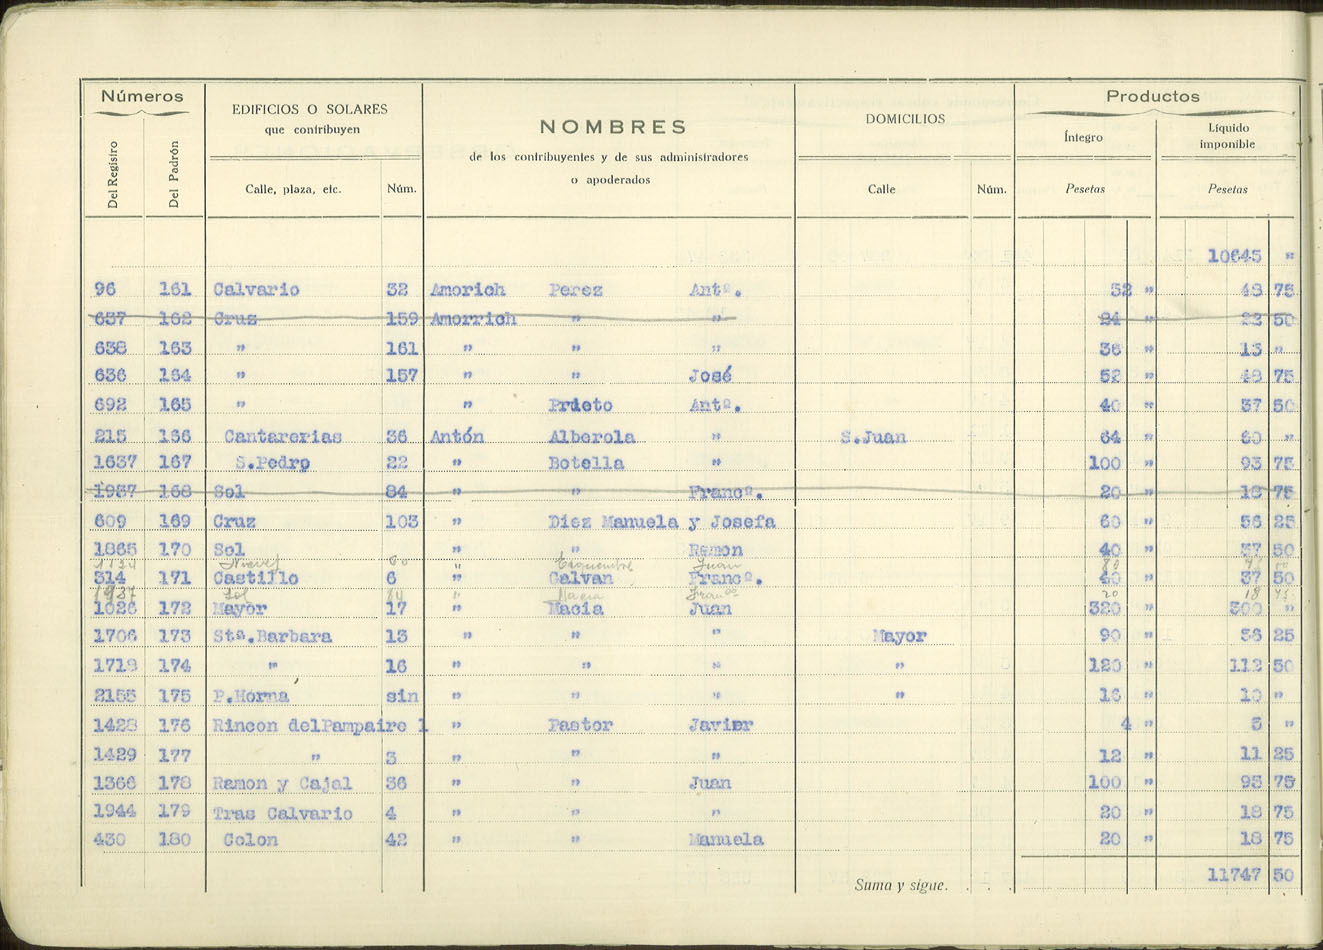 Números
EDIFICIOS O SOLARES
que contribuyen
NOMBRES
de los contribuyentes y de sus administradores
o apoderados
DOMICILIOS
Productos
Íntegro
Líquido
imponible
Del Registro
Del Padrón
Calle, plaza, etc.
Núm.
Calle
Núm.
Pesetas
Pesetas
10645 "
96 161 Calvario 32 Amorich Perez Antº. 52 " 48 75
637 162 Cruz 159 Amorrich " " 24 " 22 50
638 163 " 161 " " " 36 " 13 "
636 164 " 157 " " José 52 " 48 75
692 165 " " Prieto Antº. 40 " 37 50
215 166 Cantarerias 36 Antón Alberola " S.Juan 64 " 60 "
1637 167 S.Pedro 22 " Botella " 100 " 93 75
1937 168 Sol 84 " " Francº. 20 " 18 75
609 169 Cruz 103 " Diez Manuela y Josefa 60 " 56 25
1865 170 Sol " " Ramon 40 " 37 50
Esquembre Juan 80
314 171 Castillo 6 " Galvan Francº. 40 " 37 50
1937 Sol 84 " Macia Franco 20 18 75
1026 172 Mayor 17 " Macia Juan 320 " 300 "
1706 173 Stª.Barbara 13 " " " Mayor 90 " 56 25
1718 174 " 16 " " " " 120 " 112 50
2155 175 P.Horna sin " " " " 16 " 10 "
1428 176 Rincon delPampaire 1 " Pastor Javier 4 " 3 "
1429 177 " 3 " " " 12 " 11 25
1366 178 Ramon y Cajal 36 " " Juan 100 " 93 75
1944 179 Tras Calvario 4 " " " 20 " 18 75
430 180 Colon 42 " " Manuela 20 " 18 75
Suma y sigue. . . . 11747 50